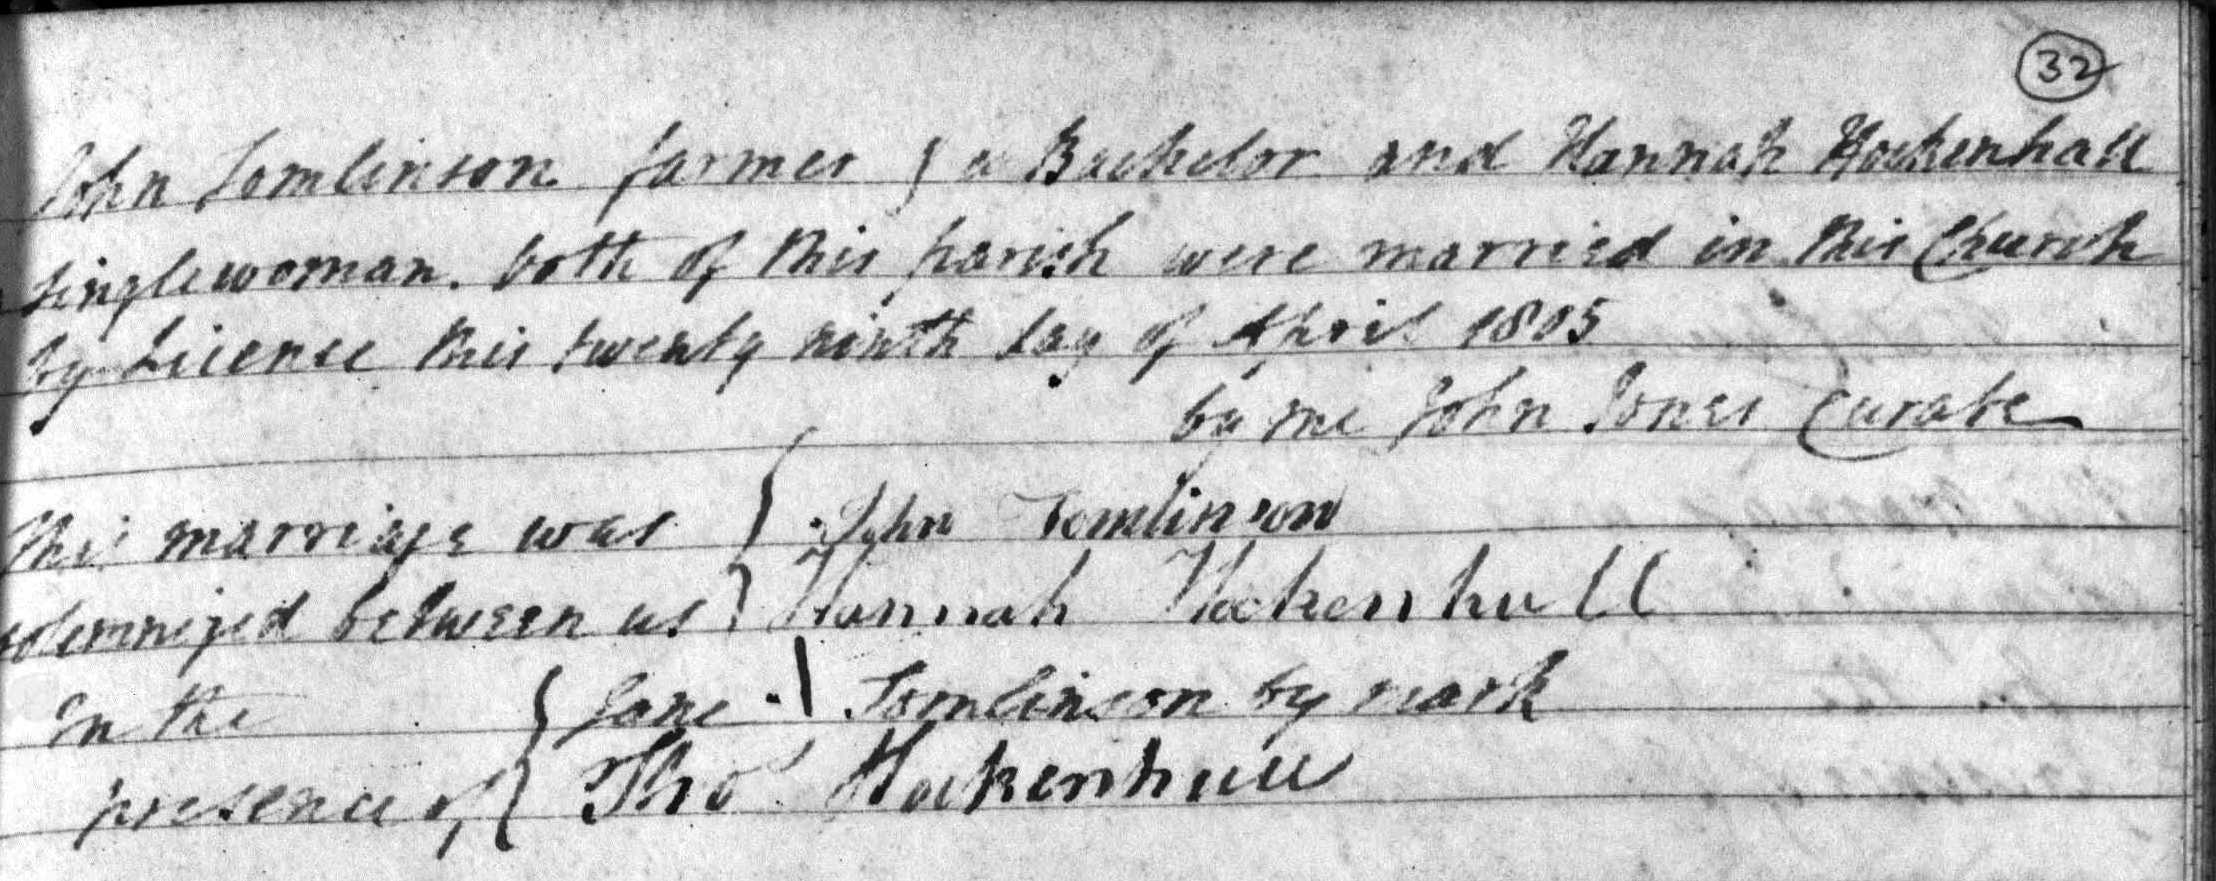 32
John Tomlinson farmer } a Bachelor and Hannah Hockenhall
singlewoman. both of this parish were married in this Church
by Licence this twenty ninth day of April 1805
by me John Jones Curate
this marriage was { John Tomlinson
solemnized between us } Hannah Hockenhull
in the { Jane | Tomlinson by mark
presence of { Tho Hockenhull